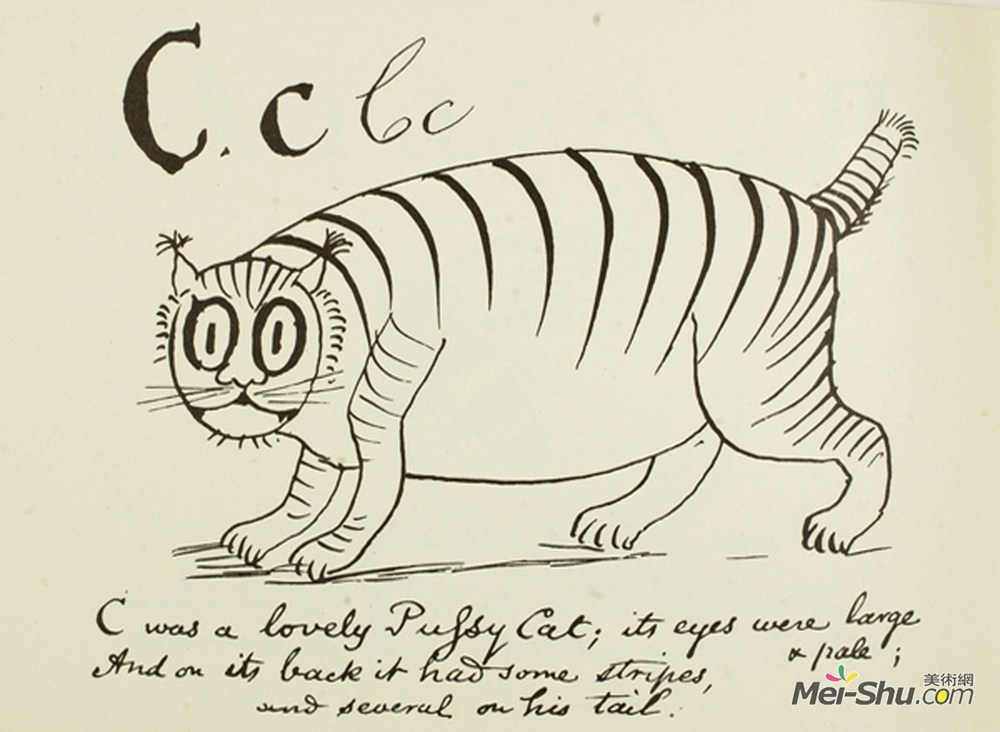 C. c C c
C was a lovely Puſsy Cat; its eyes were large
& pale;
And on its back it had some stripes,
and several on his tail.
美術網
Mei-Shu.com